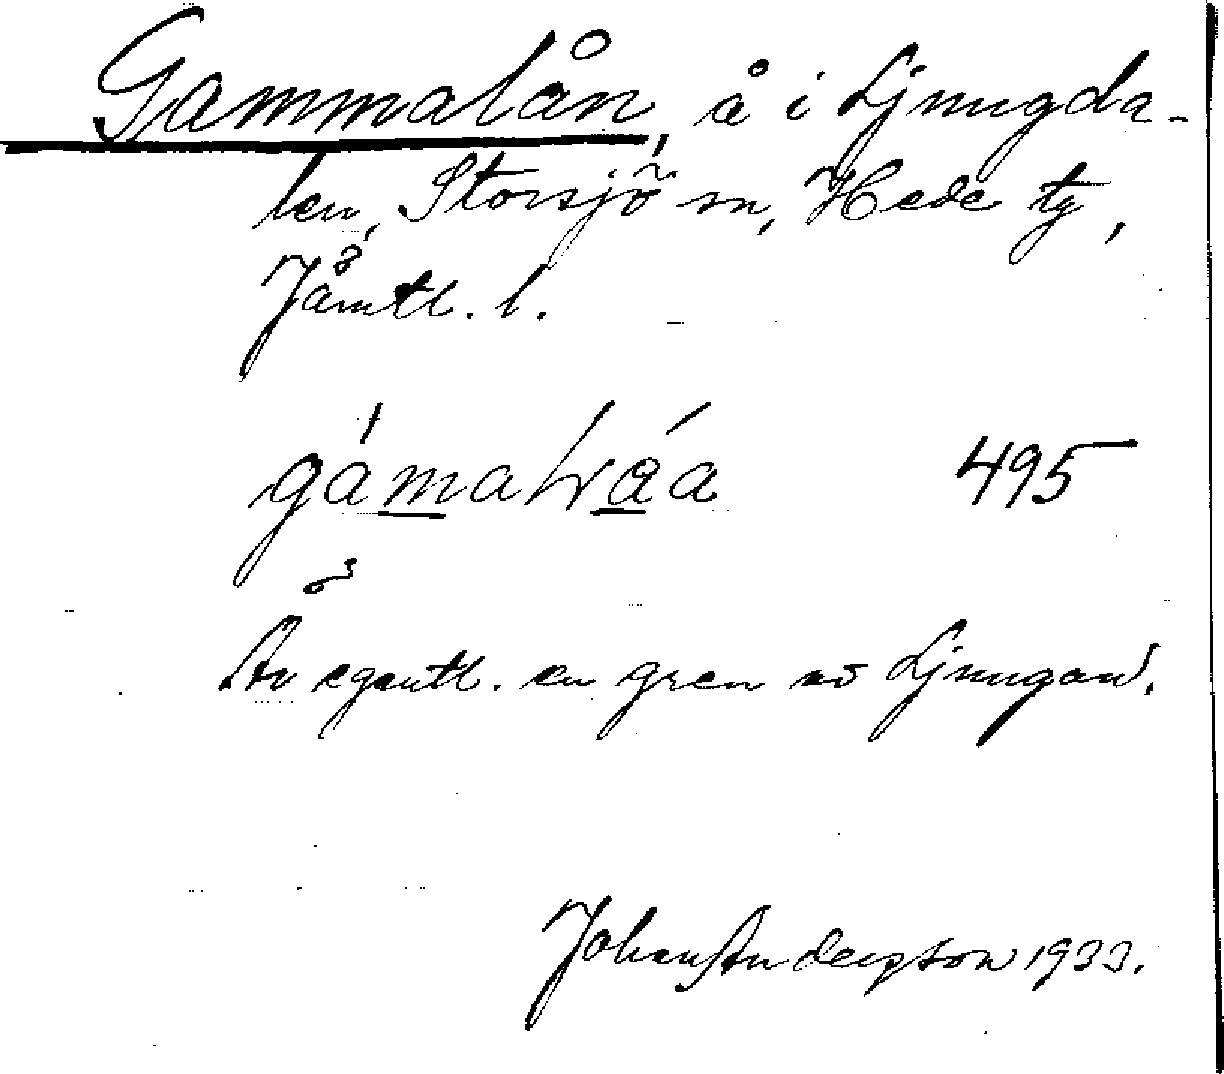 Gammalån, å i Ljungda-
len, Storsjö sn, Hede tg,
Jämtl. l.
495
Är egentl. en gren av Ljungan.
Johan Andersson 1933.